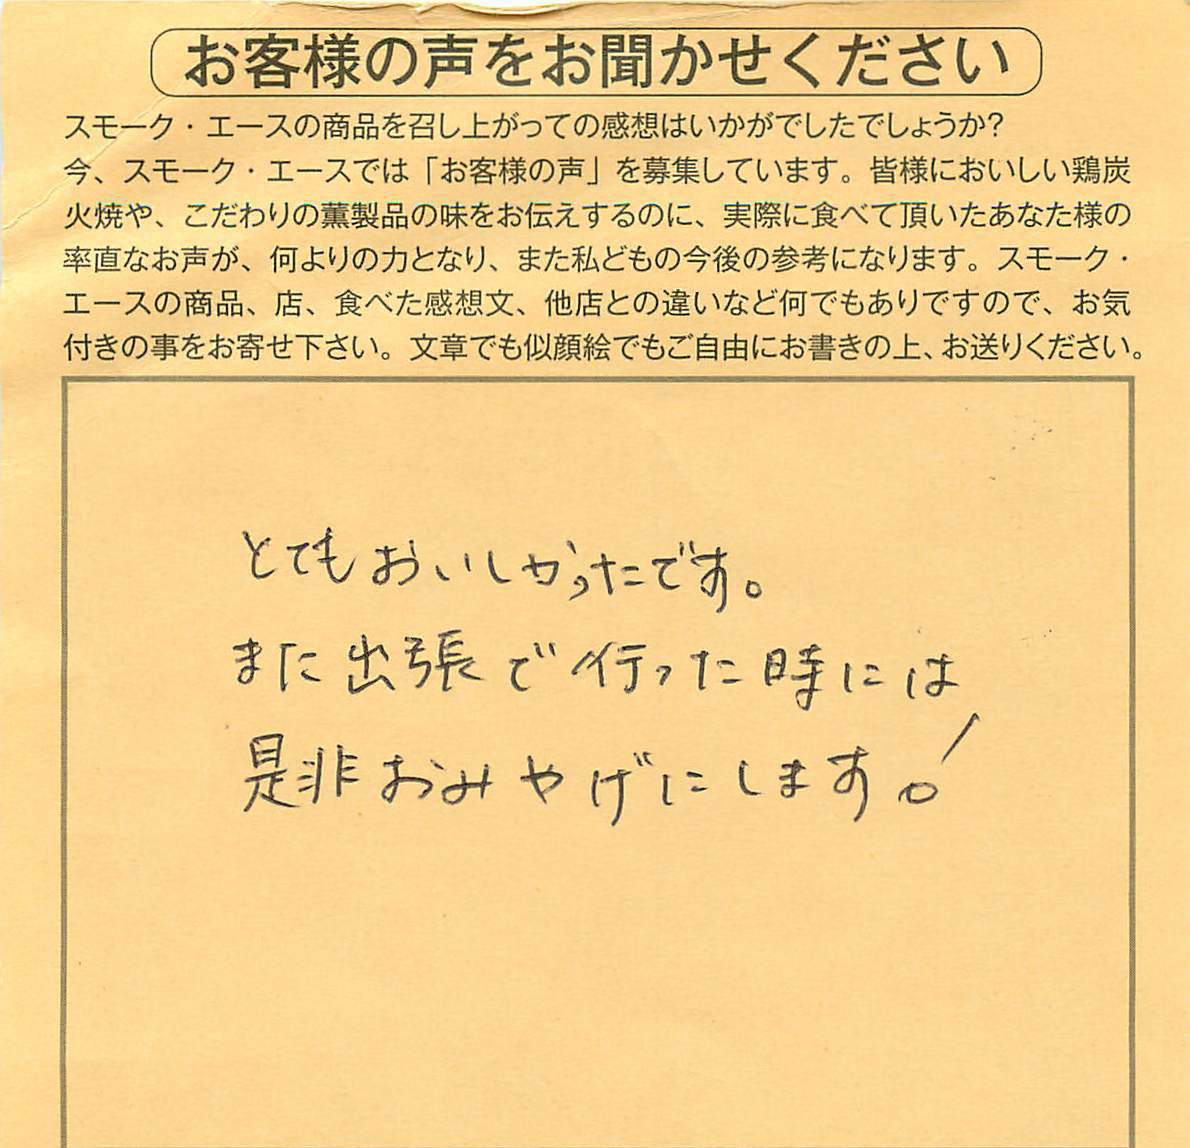 お客様の声をお聞かせください
スモーク・エースの商品を召し上がっての感想はいかがでしたでしょうか?
今、スモーク・エースでは「お客様の声」を募集しています。皆様においしい鶏炭
火焼や、こだわりの薫製品の味をお伝えするのに、実際に食べて頂いたあなた様の
率直なお声が、何よりの力となり、また私どもの今後の参考になります。スモーク・
エースの商品、店、食べた感想文、他店との違いなど何でもありですので、お気
付きの事をお寄せ下さい。文章でも似顔絵でもご自由にお書きの上、お送りください。
とてもおいしかったです。
また出張で行った時には
是非おみやげにします!